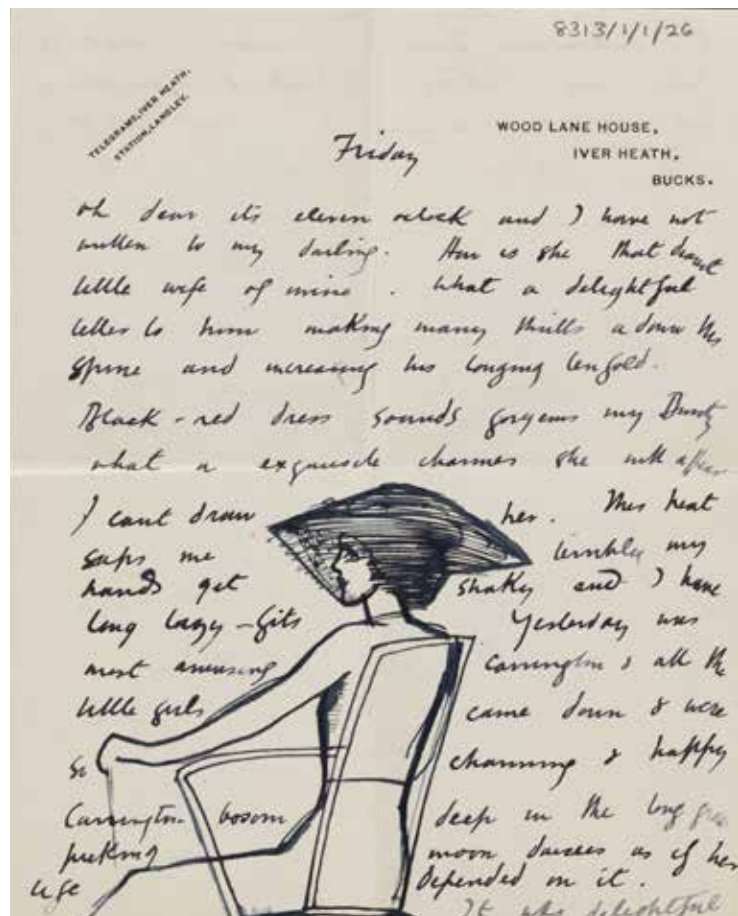 8313/1/1/26
TELEGRAMS, IVER HEATH.
STATION, LANGLEY.
WOOD LANE HOUSE,
IVER HEATH,
BUCKS.
Friday
oh dear its eleven oclock and I have not
written to my darling. How is she that dearest
little wife of mine. What a delightful
letter to him making many thrills adown his
spine and increasing his longing tenfold.
Black-red dress sounds gorgeous my
what a exquisite charmer she will
I cant draw her. This heat
saps me terribly my
hands get shaky and I have
long lazy-fits Yesterday was
most amusing Carrington & all the
little girls came down & were
so charming & happy
Carrington bosom deep in the long grass
picking moon daisies as if her
life depended on it.
It was delightful